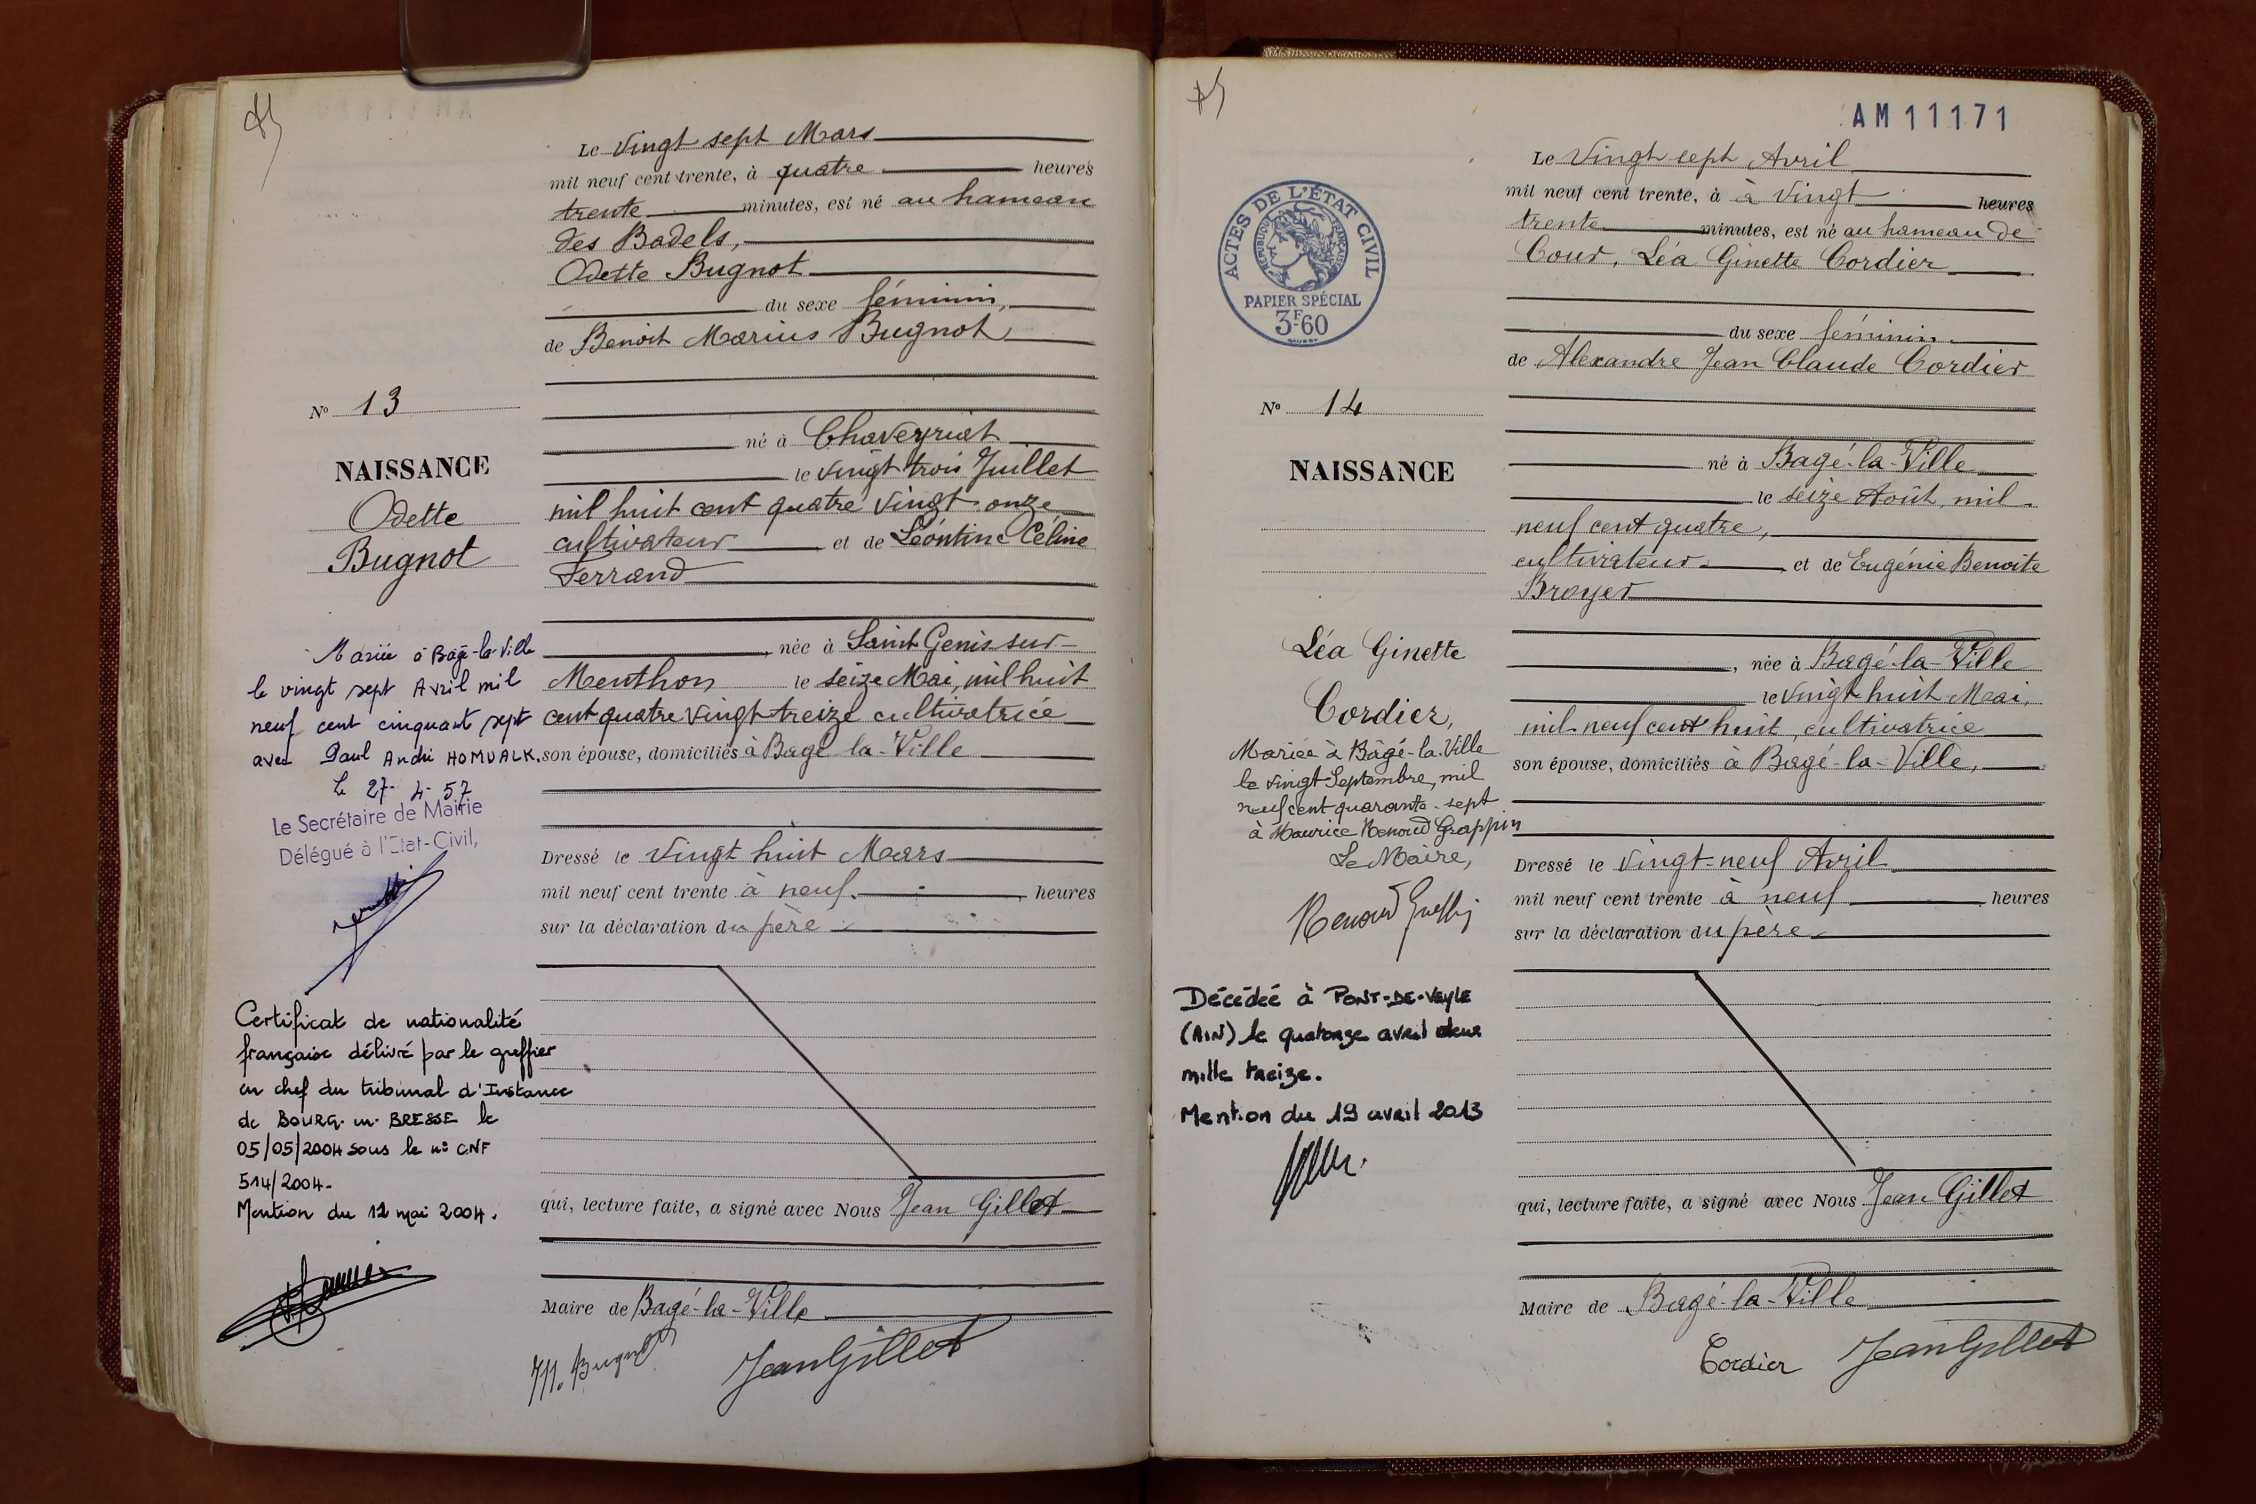 Le vingt sept Mars
mil neuf cent trente, à quatre heures
trente minutes, est né au hameau
des Badels,
Odette Bugnot
du sexe féminin,
de Benoit Marius Bugnot
né à Chaveyriat
le vingt trois Juillet
mil huit cent quatre vingt onze
cultivateur et de Léontine Céline
Ferrand
, née à Saint Genis sur
Menthon le seize Mai, mil huit
cent quatre vingt treize cultivatrice
son épouse, domiciliés à Bagé la-Ville
Dressé le vingt huit Mars
mil neuf cent trente à neuf heures
sur la déclaration du père
qui, lecture faite, a signé avec Nous Jean Gillet
Maire de Bagé-la-Ville
M. Bugnot
Jean Gillet
No 13
NAISSANCE
Odette
Bugnot
Mariée à Bagé-la-Ville
le vingt sept Avril mil
neuf cent cinquante sept
avec Paul André HOMUALK.
le 27-4-57
Le Secrétaire de Mairie
Délégué à l'Etat-Civil,
Certificat de nationalité
française délivré par le greffier
en chef du tribunal d'Instance
de BOURG. en. BRESSE le
05/05/2004 sous le n° CNF
514/2004.
Mention du 12 mai 2004.
AM11171
Le vingt sept Avril
mil neuf cent trente, à à vingt heures
trente minutes, est né au hameau de
Cour, Léa Ginette Cordier
du sexe féminin.
de Alexandre Jean Claude Cordier
né à Bagé-la-Ville
le seize Août, mil
neuf cent quatre,
cultivateur et de Eugénie Benoite
Broyer
, née à Bagé-la-Ville
le vingt huit Mai,
mil neuf cent huit, cultivatrice
son épouse, domiciliés à Bagé-la-Ville,
Dressé le vingt-neuf Avril
mil neuf cent trente à neuf heures
sur la déclaration du père
qui, lecture faite, a signé avec Nous Jean Gillet
Maire de Bagé-la-Ville
Cordier Jean Gillet
ACTES DE L'ÉTAT CIVIL
RÉPUBLIQUE FRANÇAISE
PAPIER SPÉCIAL
3F-60
No 14
NAISSANCE
Léa Ginette
Cordier,
Mariée à Bâgé-la-Ville
le vingt Septembre, mil
neuf cent quarante-sept
à Maurice Renoud Grappin
Le Maire,
Renoud Grappin
Décédée à PONT-DE-VEYLE
(AIN) le quatorze avril deux
mille treize.
Mention du 19 avril 2013